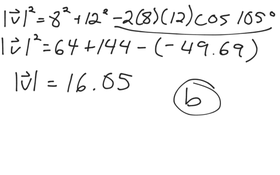 |v⃗|² = 8² + 12² - 2(8)(12) cos 105°
|v⃗|² = 64 + 144 - (-49.69)
|v⃗| = 16.05
b